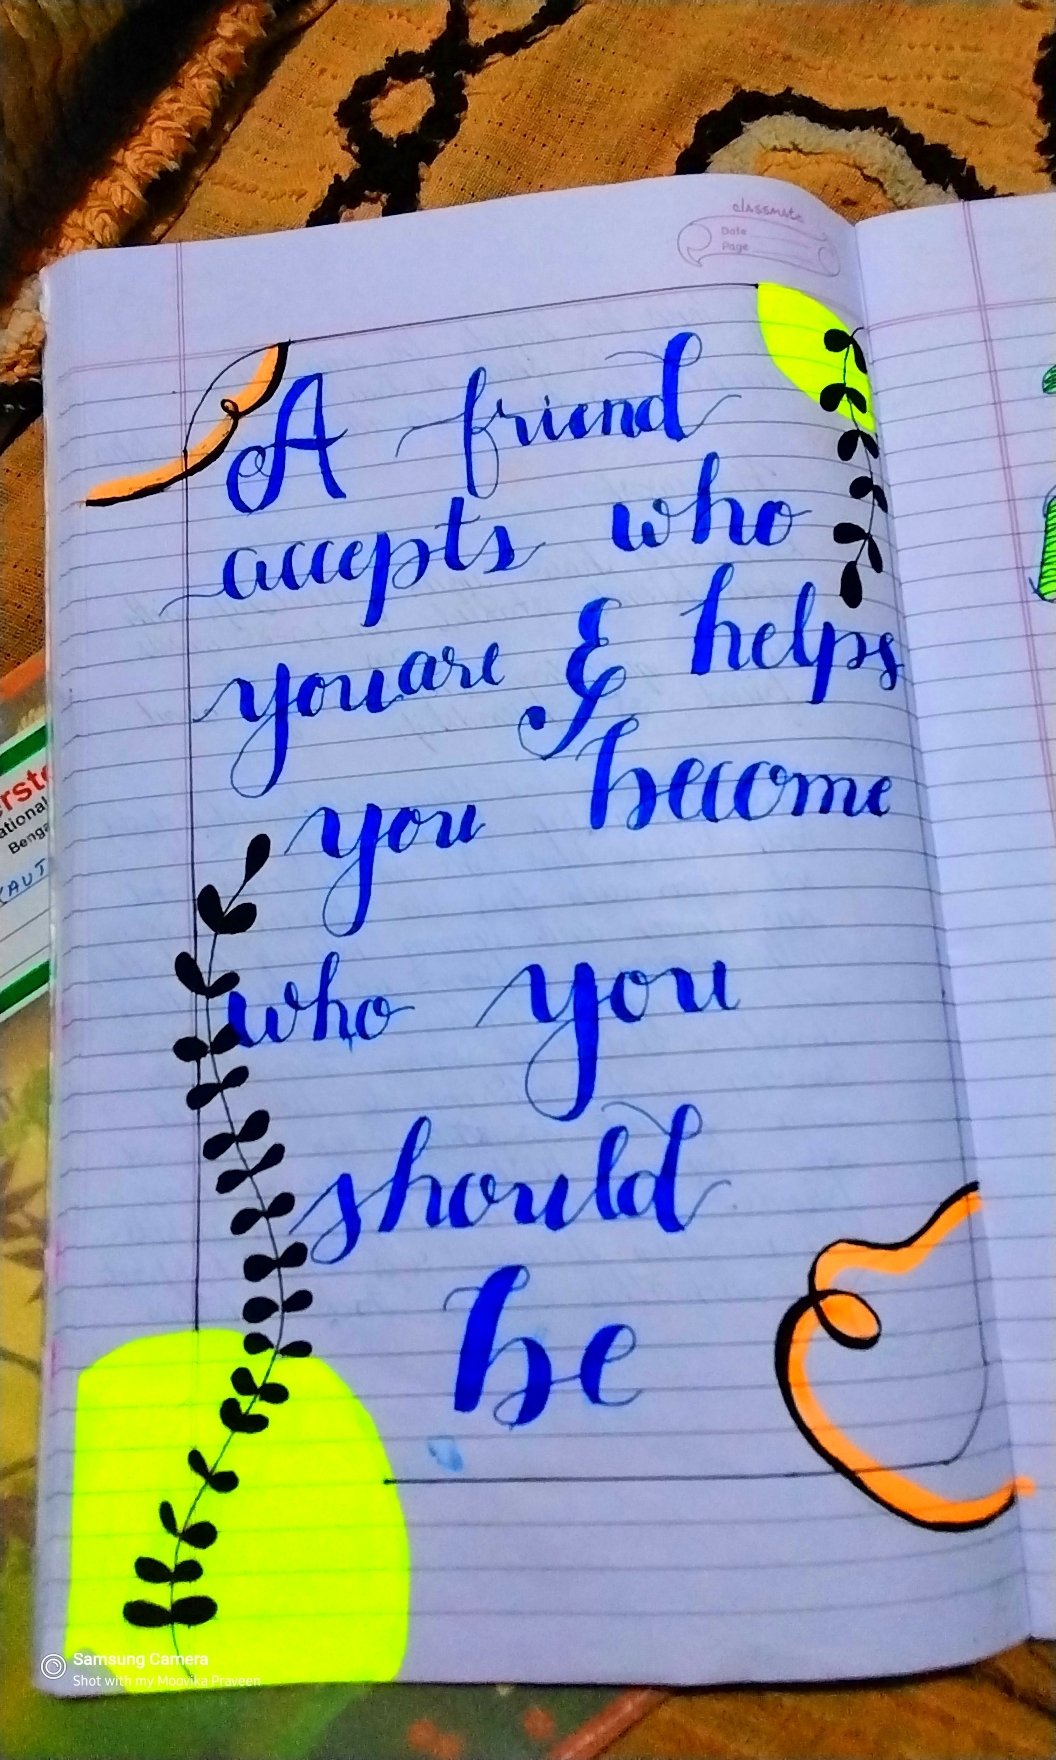 classmate
Date
Page
A friend
accepts who
you are & helps
you become
who you
should
be
ational
Benga
Samsung Camera
Shot with my Moovika Praveen